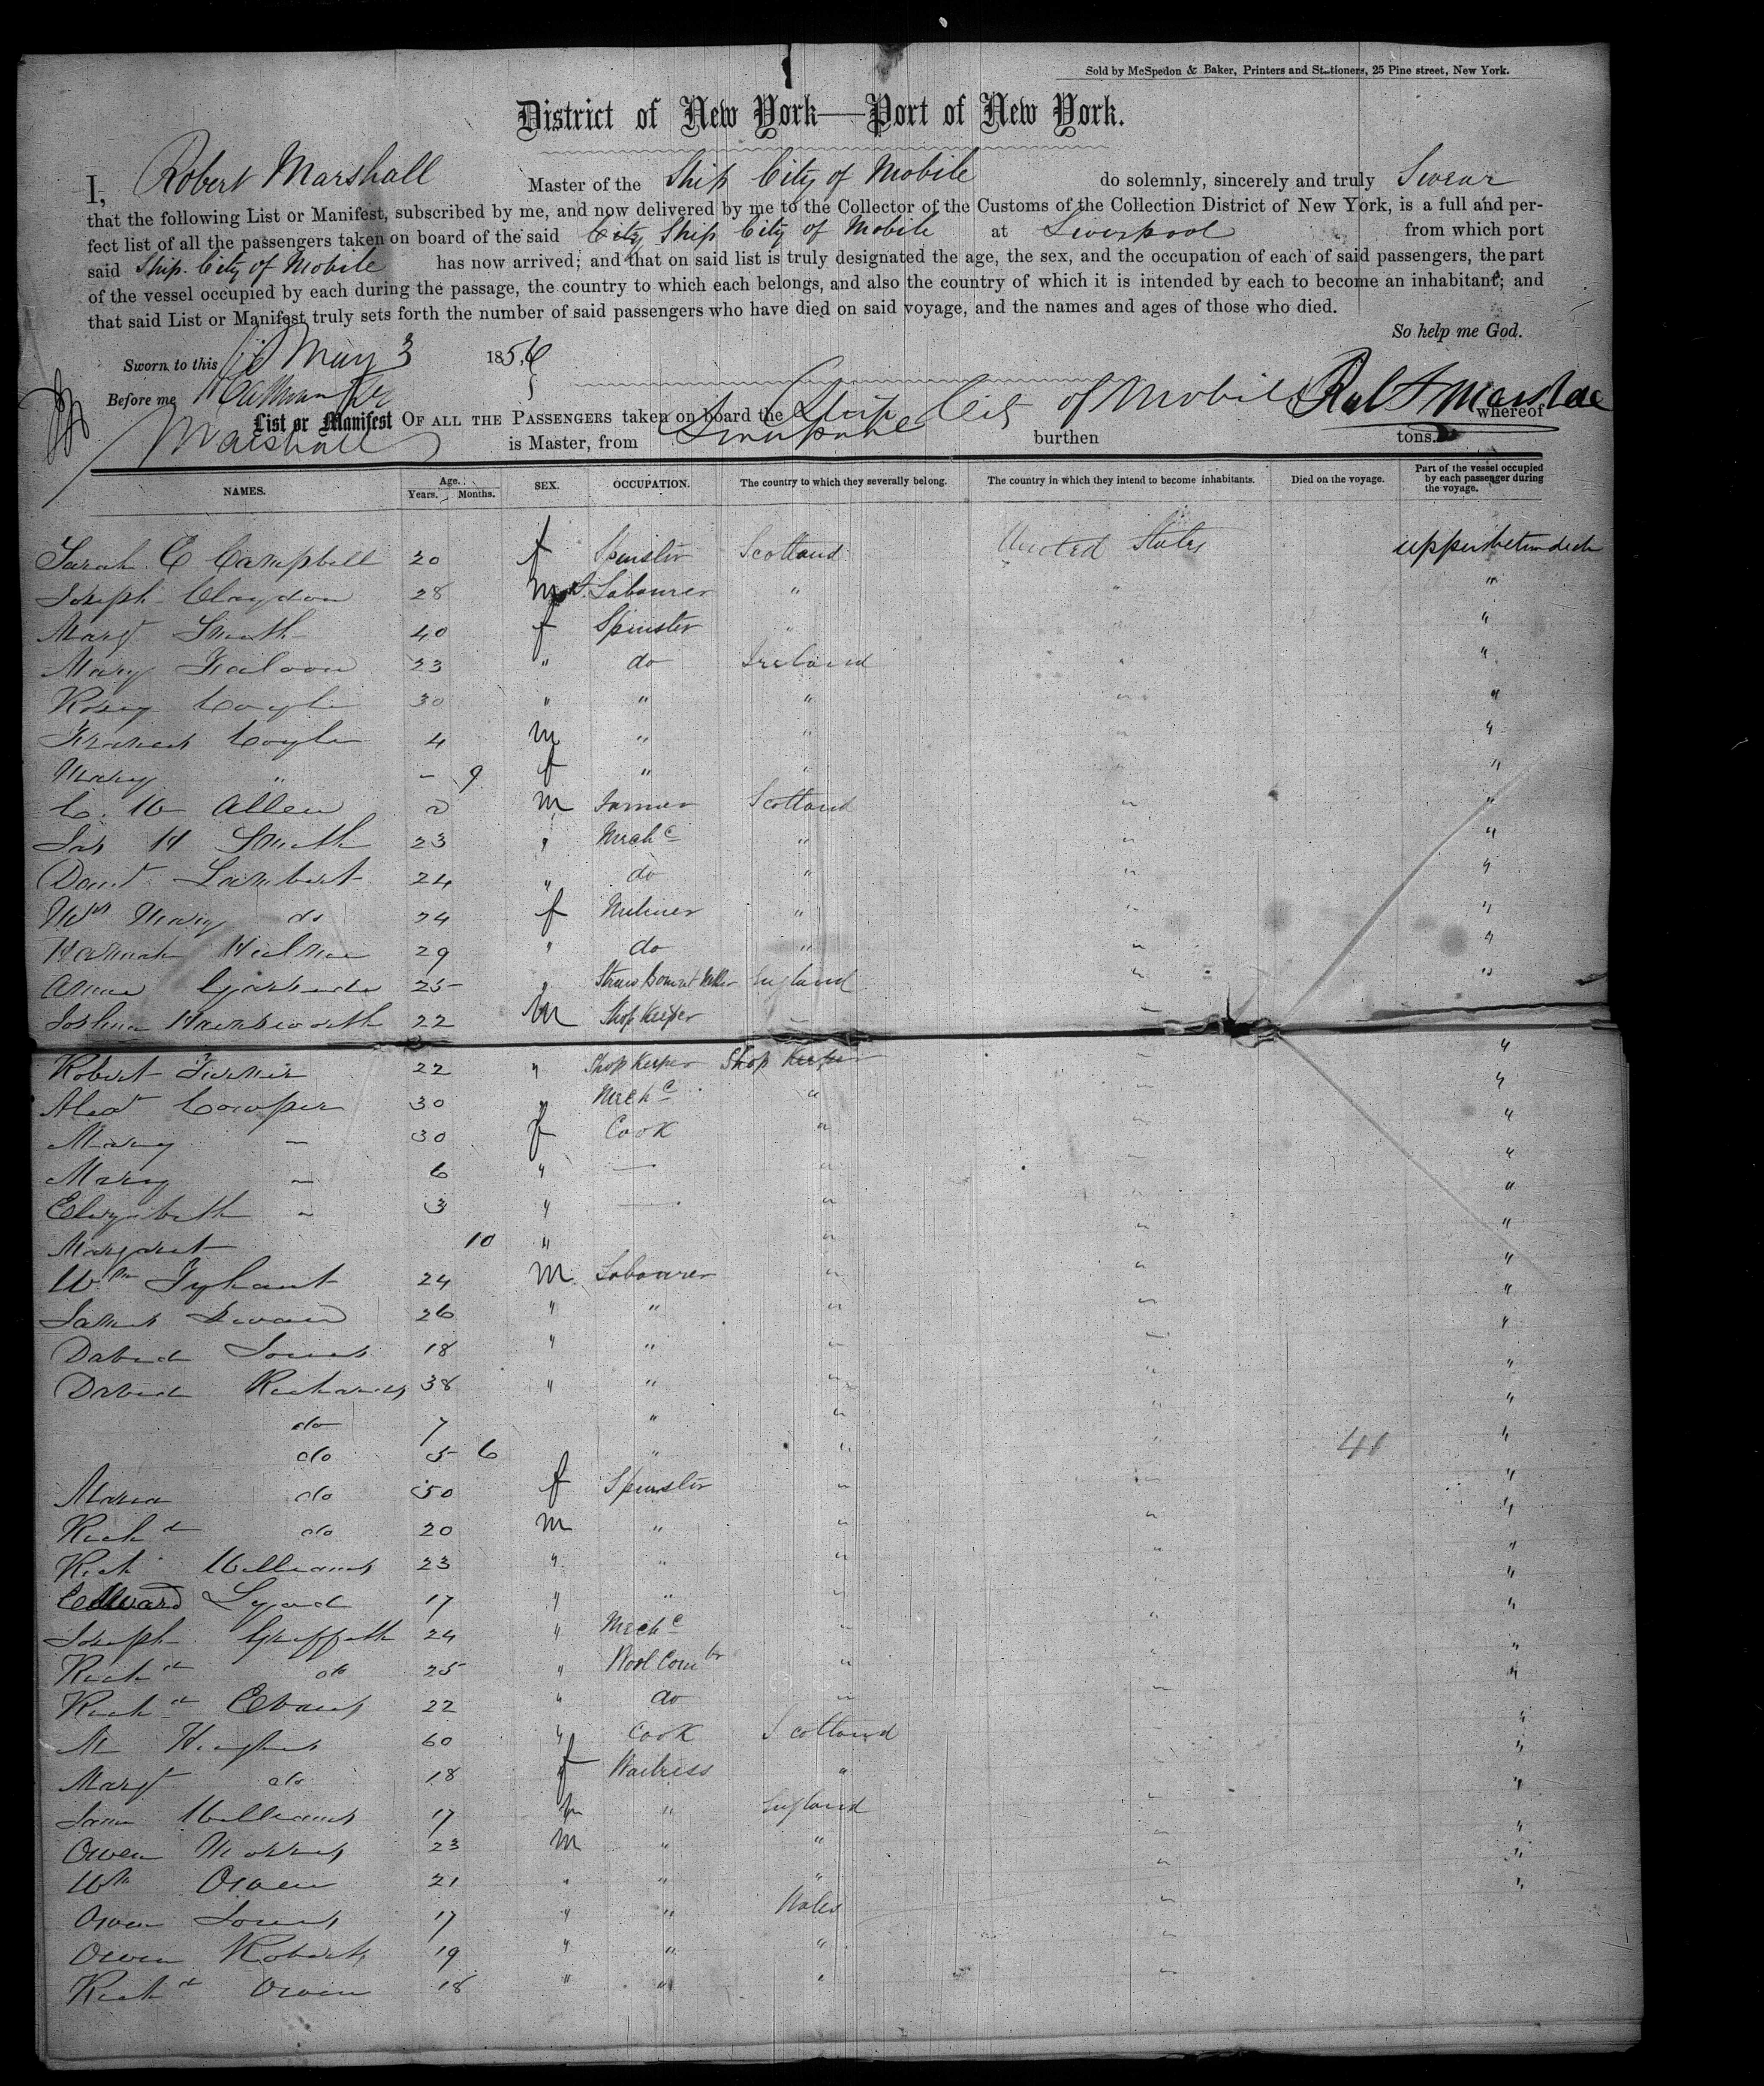 Sold by McSpedon & Baker, Printers and Stationers, 25 Pine street, New York.
District of New York—Port of New York.
I, Robert Marshall Master of the Ship City of Mobile do solemnly, sincerely and truly Swear
that the following List or Manifest, subscribed by me, and now delivered by me to the Collector of the Customs of the Collection District of New York, is a full and per-
fect list of all the passengers taken on board of the said City Ship City of Mobile at Liverpool from which port
said Ship City of Mobile has now arrived; and that on said list is truly designated the age, the sex, and the occupation of each of said passengers, the part
of the vessel occupied by each during the passage, the country to which each belongs, and also the country of which it is intended by each to become an inhabitant; and
that said List or Manifest truly sets forth the number of said passengers who have died on said voyage, and the names and ages of those who died.
So help me God.
Sworn to this May 3 1856
Before me
List or Manifest OF ALL THE PASSENGERS taken on board the Ship City of Mobile Robt Marshall whereof
Marshall is Master, from Liverpool burthen tons.
NAMES. Age. Years. Months. SEX. OCCUPATION. The country to which they severally belong. The country in which they intend to become inhabitants. Died on the voyage. Part of the vessel occupied by each passenger during the voyage.
Sarah C Campbell 20 f Spinster Scotland United States upper between deck
Joseph Claydon 28 m Labourer " " "
Margt Smith 40 f Spinster " "
Mary Faloon 23 " do Ireland " "
Rosey Coyle 30 " " " " "
Francis Coyle 4 m " " " "
Mary " - 9 f " " " "
C. W Allen 2 m Farmer Scotland " "
Jas H Smith 23 " Mechc " " "
Davd Lambert 24 " do " " "
Mrs Mary do 24 f Miliner " " "
Hannah 29 " do " " "
Annie 25 " Straw Bonnet England " "
Joshua Hainsworth 22 m Shop Keeper "
Robert Turner 22 " Shop Keeper Shop Keeper " "
Alexr Cowper 30 " Mechc " " "
Mary - 30 f Cook " " "
Mary - 6 " — " " "
Elizabeth - 3 " — " " "
Margaret 10 " " " "
Wm 24 m Labourer " " "
James 26 " " " " "
David Jones 18 " " " " "
David Richards 38 " " " " "
do 7 " " " "
do 5 6 " " " 41 "
Maria do 50 f Spinster " " "
Richd do 20 m " " " "
Rich Williams 23 " " " " "
Edward 17 " " " " "
Joseph Griffith 24 " Mechc " " "
Richd do 25 " Wool Combr " " "
Richd Evans 22 " do " " "
M Hughes 60 " Cook Scotland " "
Margt do 18 f Waitress " " "
Williams 17 m " England " "
Owen Morris 23 m " " " "
Wm Owen 21 " " " " "
Owen Jones 17 " " Wales "
Owen Roberts 19 " " " "
Richd Owen 18 " " " "